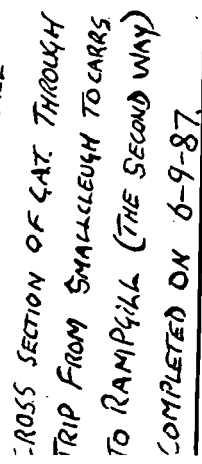 CROSS SECTION OF C.A.T. THROUGH
TRIP FROM SMALLCLEUGH TO CARRS
TO RAMPGILL (THE SECOND WAY)
COMPLETED ON 6-9-87.